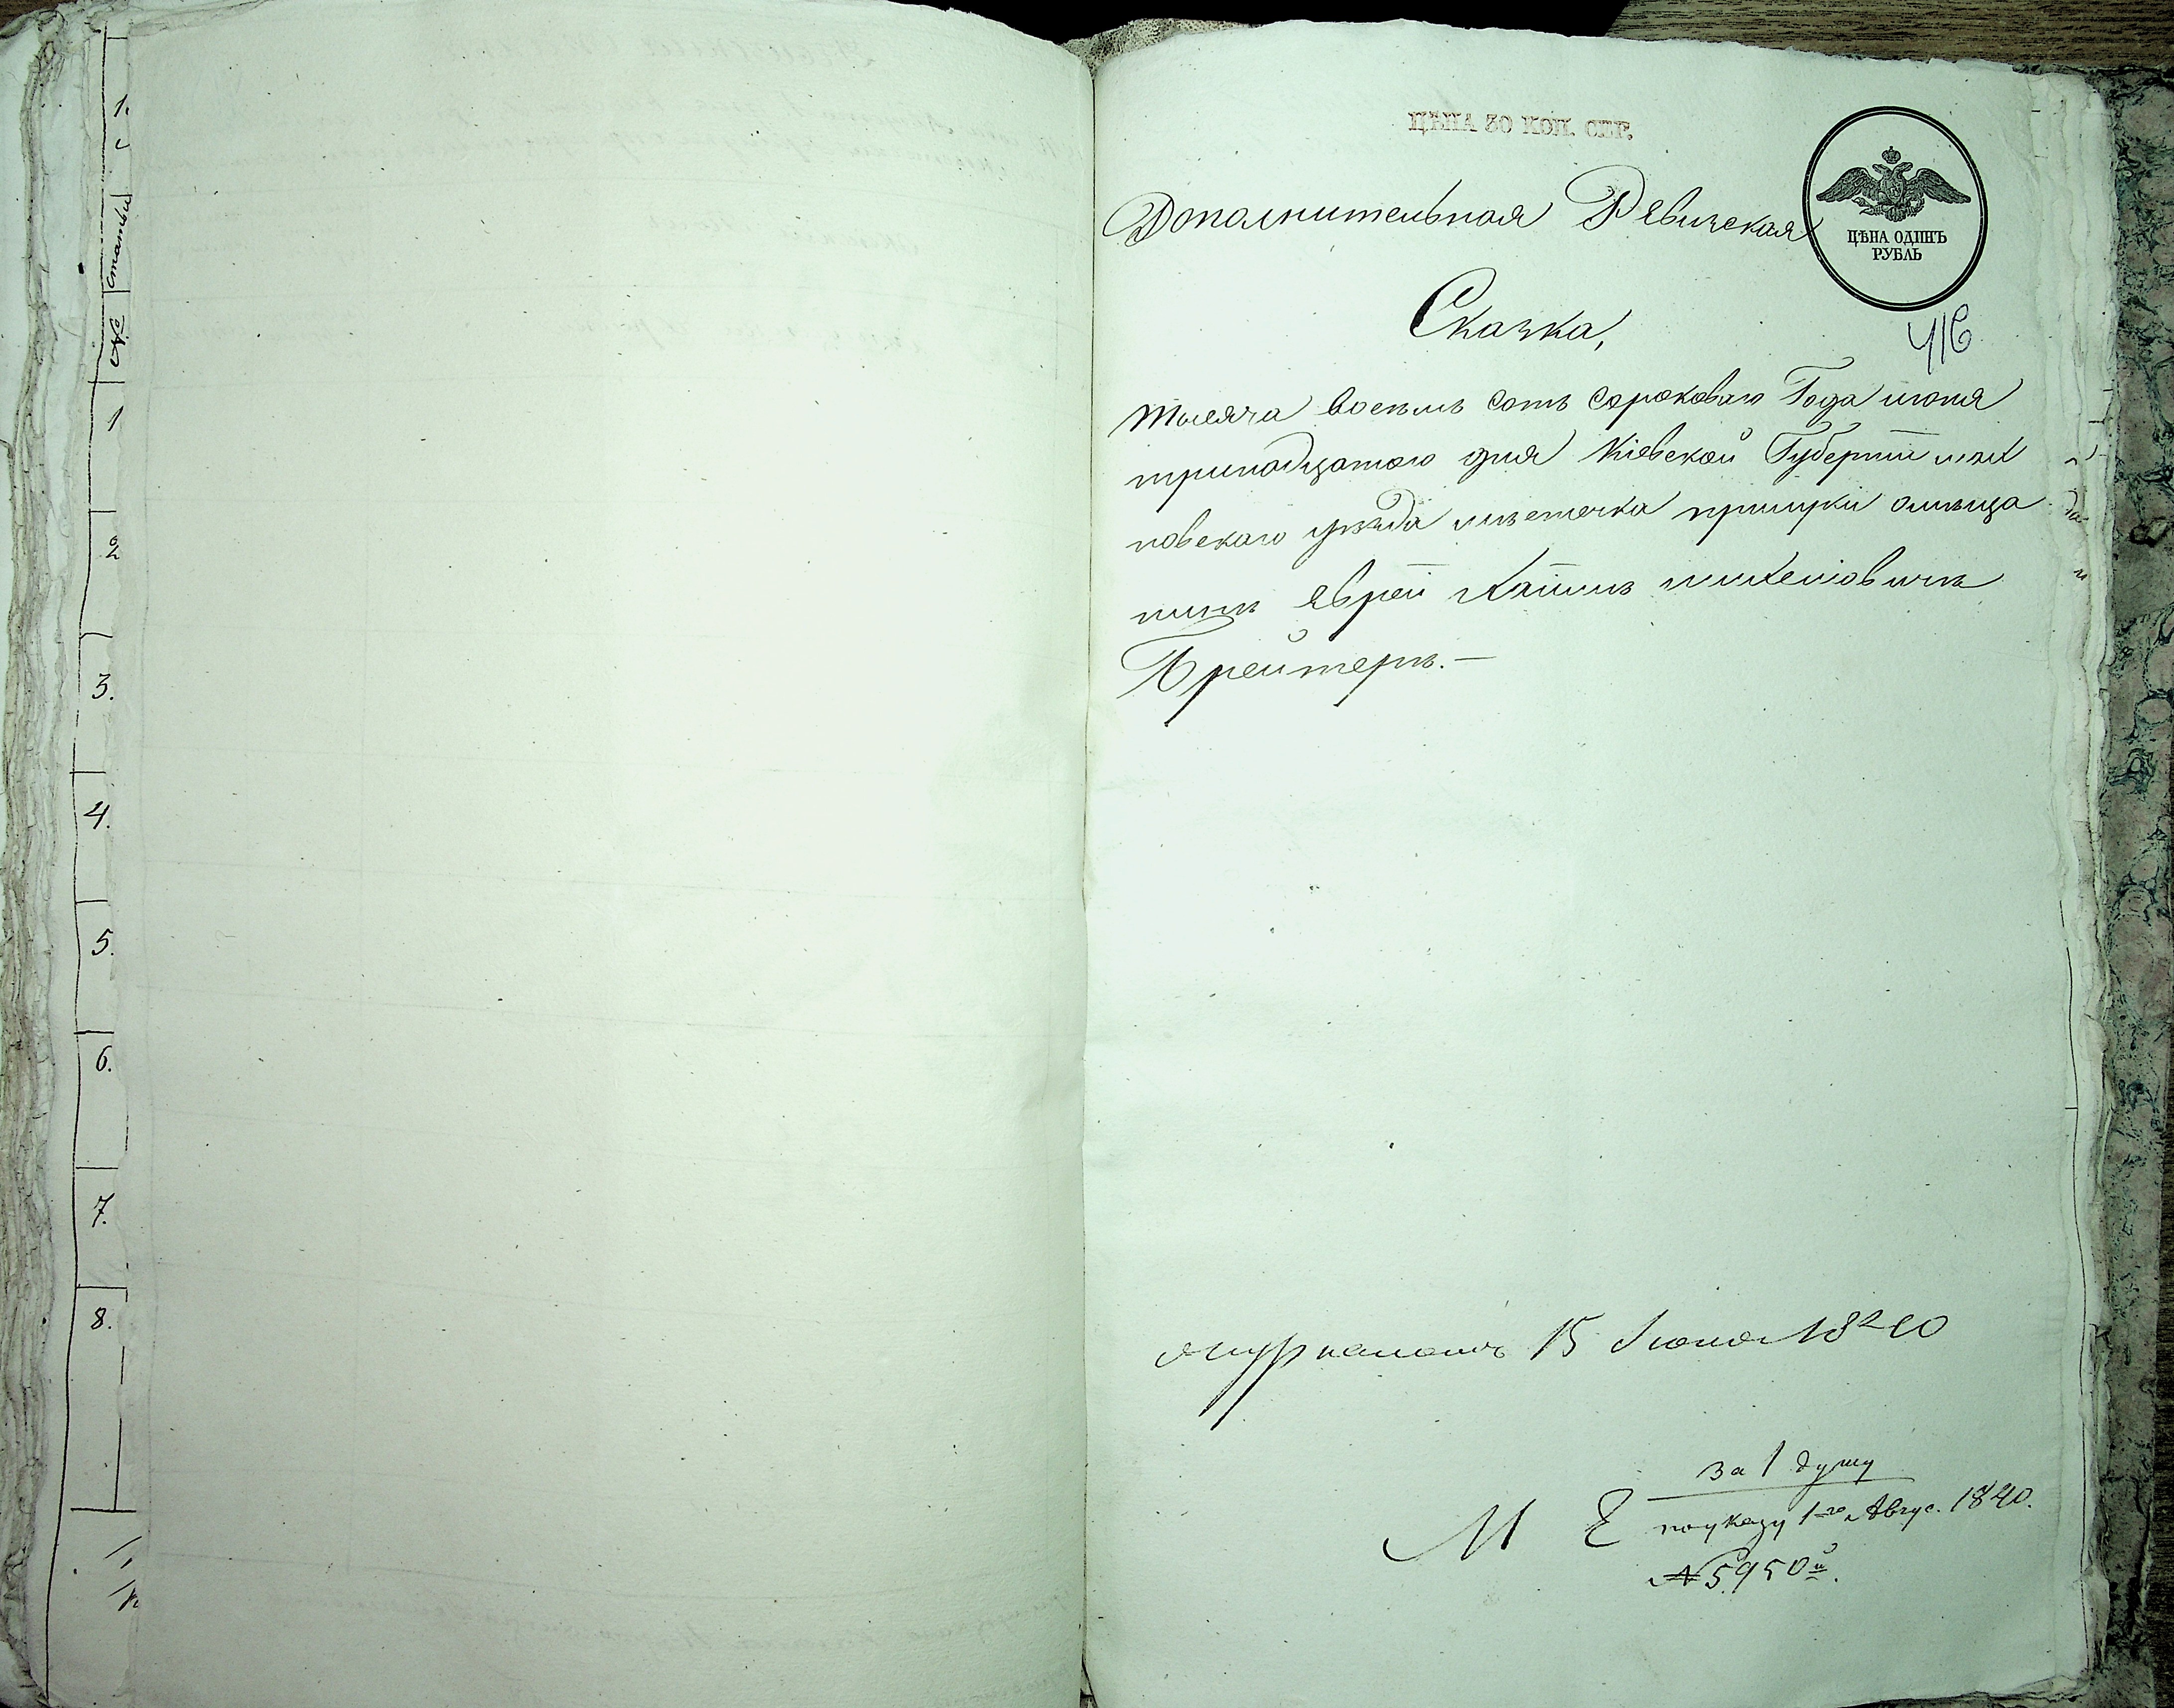 1.
№ статьи
1
2
3.
4.
5.
6.
7.
8.
ЦѢНА 30 КОП. СЕР.
ЦѢНА ОДИНЪ
РУБЛЬ
Дополнительная Ревизская
Сказка,
416
тысяча восемъ сотъ сороковаго Года июня
тринадцатого дня Кіевской Губерніи
повскаго уѣзда мѣстечка прилуки
еврей Хаимъ
Брейтеръ. —
15 Іюня 1840
за 1 душу
по указу 1-го Авгус. 1840.
М Е
№ 5950й.